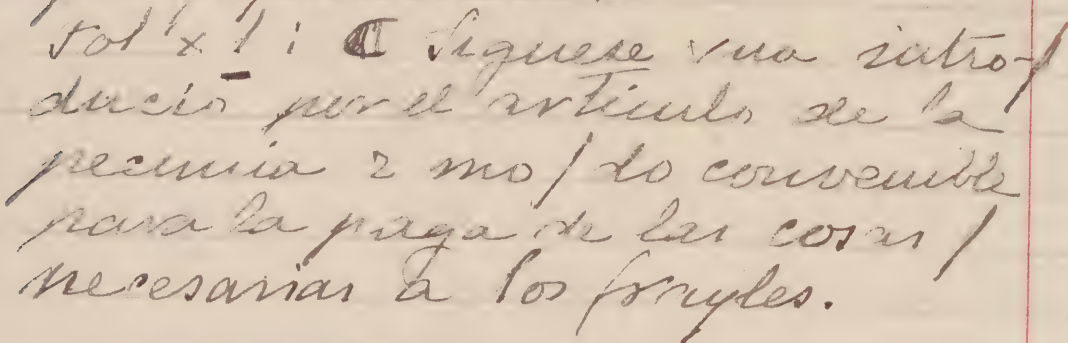 Fol x l : ⸿ Siguese vna intro-/
ducio̅ por el articulo de la
pecunia ꝛ mo / do convenible
para la paga de las cosas /
necesarias a los frayles.